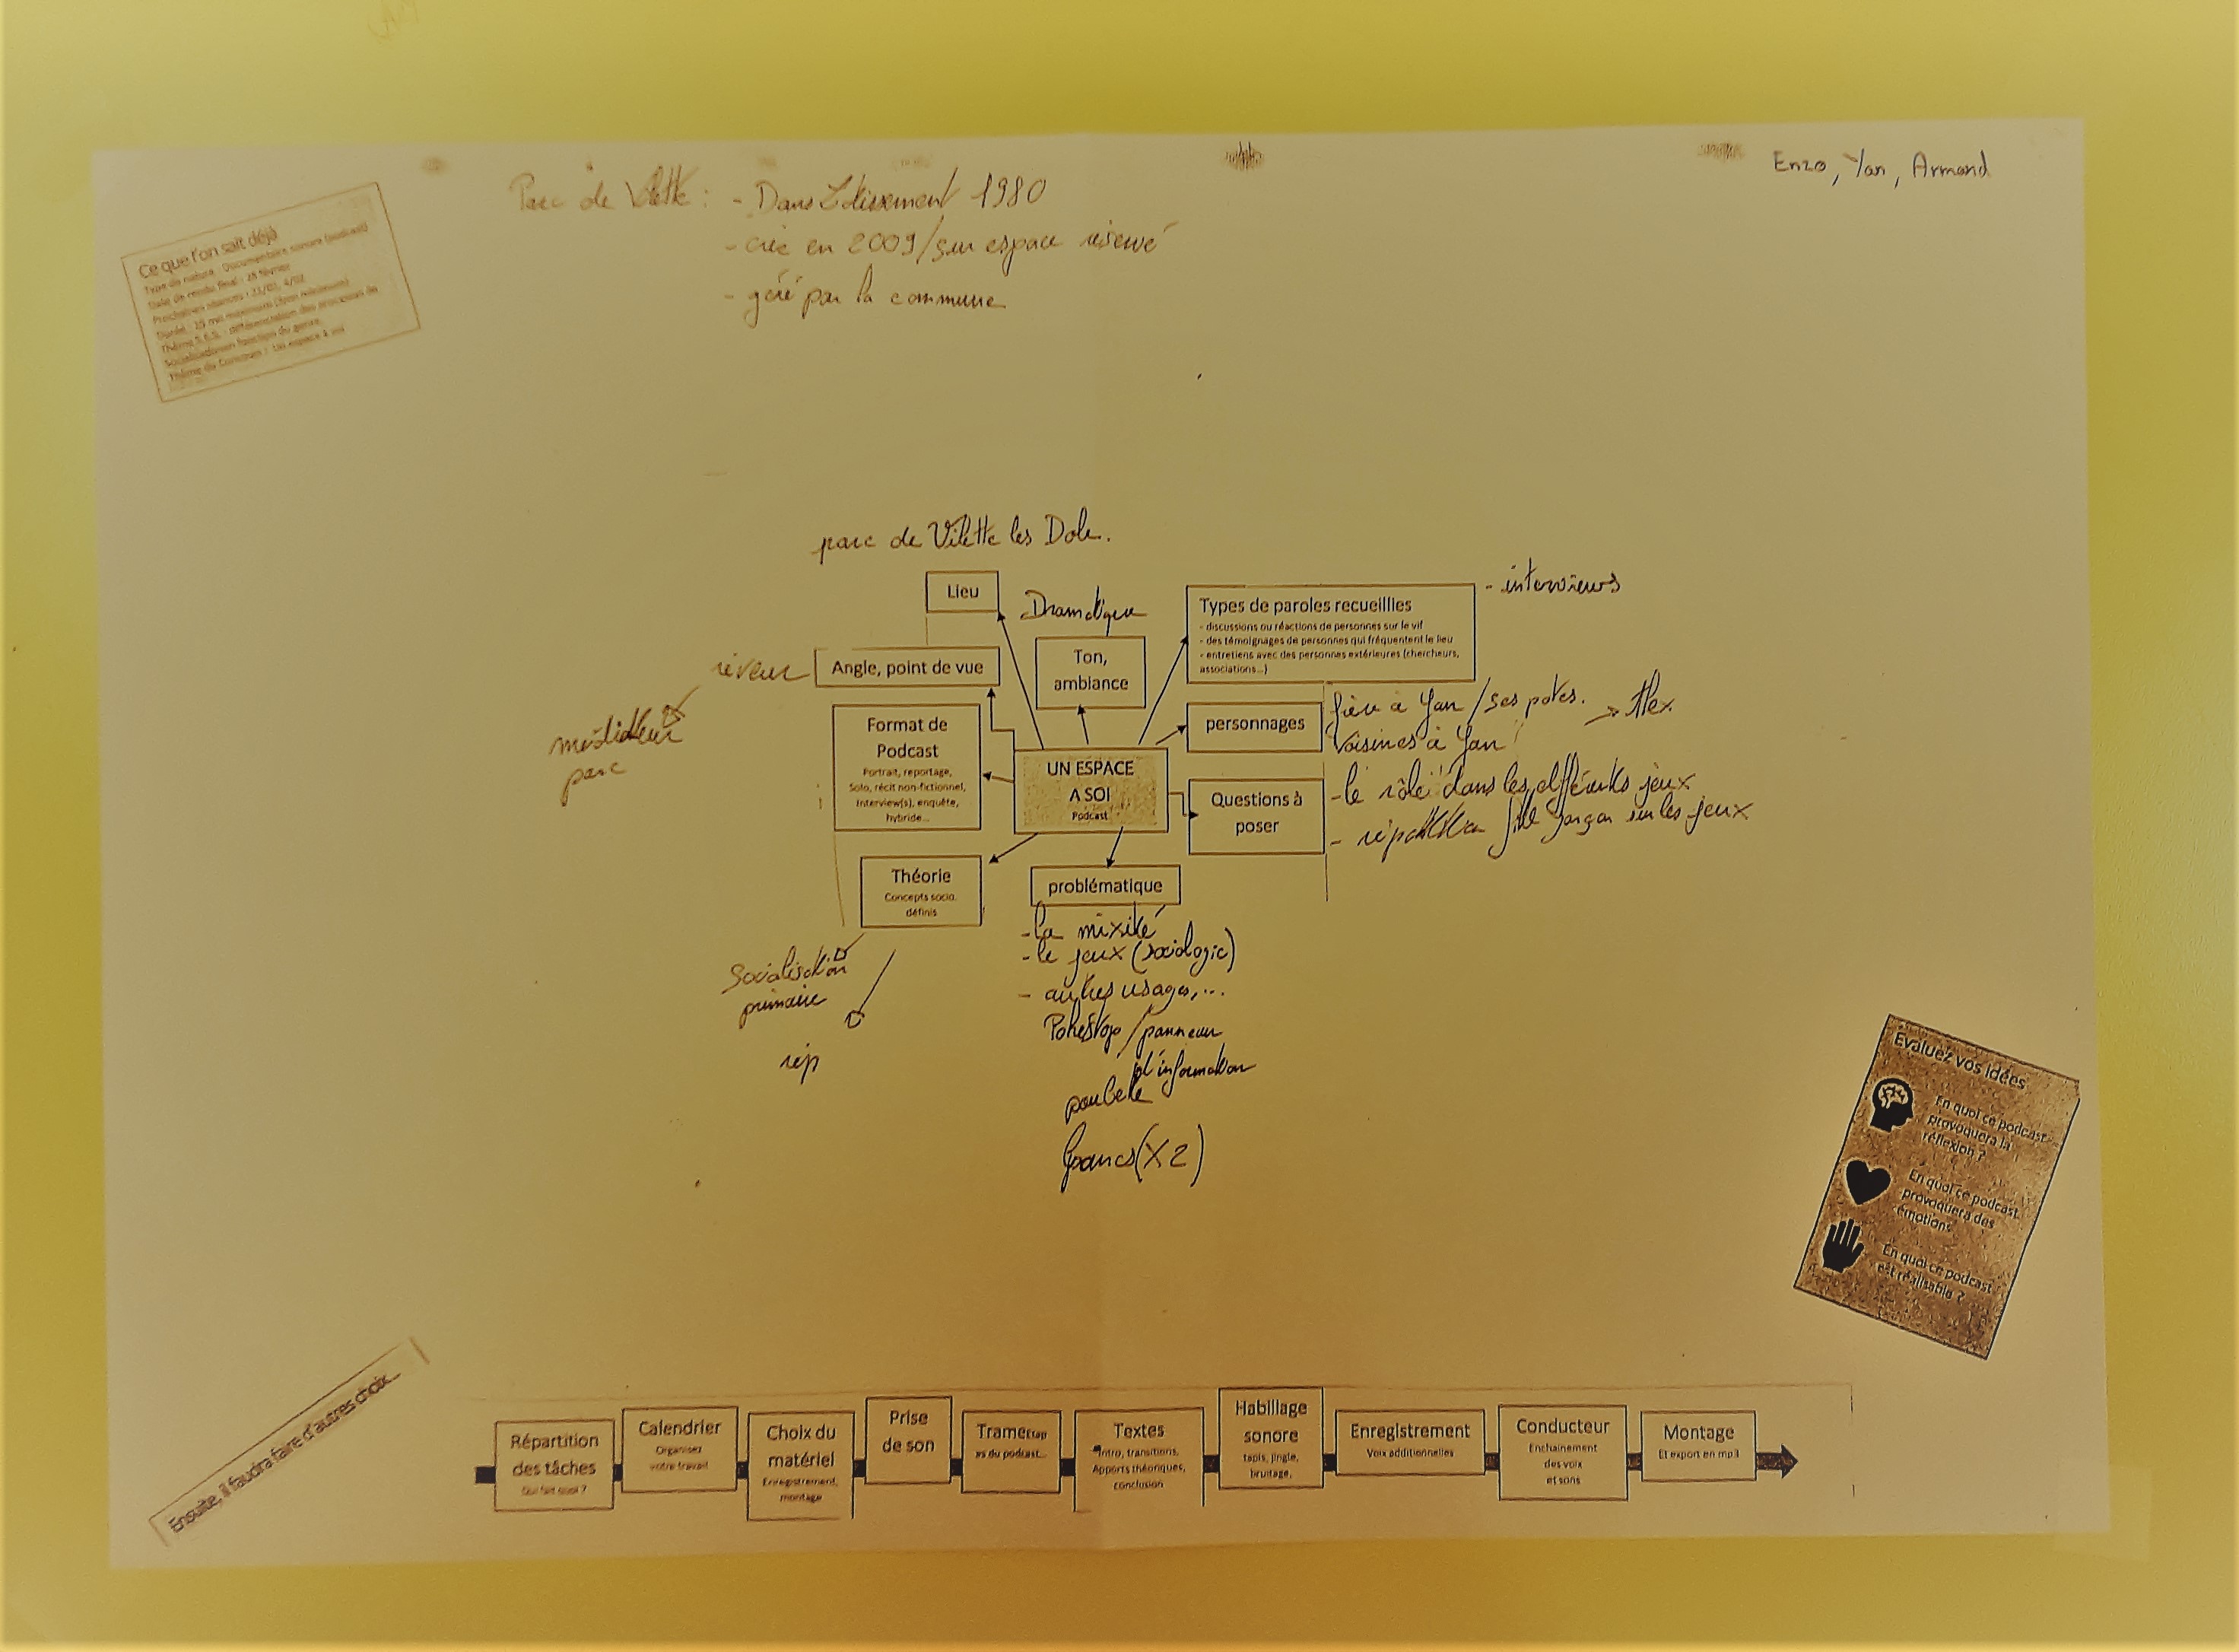 Enzo, Yan, Armand
Parc de Vilette : - Dans Lotissement 1980
- crée en 2009/sur espace réservé
- géré par la commune
Ce que l'on sait déjà
Type de nature : Documentaire sonore (podcast)
Date de rendu final : 28 février
Prochaines séances :
Thème de Concours : Un espace à soi
parc de Vilette les Dole.
Lieu
Dramatique
Ton,
ambiance
Types de paroles recueillies
- discussions ou réactions de personnes sur le vif
- des témoignages de personnes qui fréquentent le lieu
- entretiens avec des personnes extérieures (chercheurs,
associations...)
- interviews
rêveur
Angle, point de vue
médiateur
parc
Format de
Podcast
Portrait, reportage,
Solo, récit non-fictionnel,
Interview(s), enquête,
hybride...
personnages
frère à Yan / ses potes.
Voisines à Yan
UN ESPACE
A SOI
Podcast
Questions à
poser
- le rôle dans les différents jeux
- répartition fille garçon sur les jeux
Théorie
Concepts socio.
définis
Socialisation
primaire
rép
problématique
- la mixité
- le jeux (sociologie)
- autres usages,...
Pokestop / panneau
d'information
poubelle
bancs (X2)
Evaluez vos idées
En quoi ce podcast
provoquera la
réflexion ?
En quoi ce podcast
provoquera des
émotions
En quoi ce podcast
est réalisable ?
Ensuite, il faudra faire d'autres choix...
Répartition
des tâches
Qui fait quoi ?
Calendrier
Organisez
votre travail
Choix du
matériel
Enregistrement,
montage
Prise
de son
Trame Etap
es du podcast...
Textes
Intro, transitions,
Apports théoriques,
conclusion
Habillage
sonore
tapis, jingle,
bruitage,
Enregistrement
Voix additionnelles
Conducteur
Enchainement
des voix
et sons
Montage
Et export en mp3